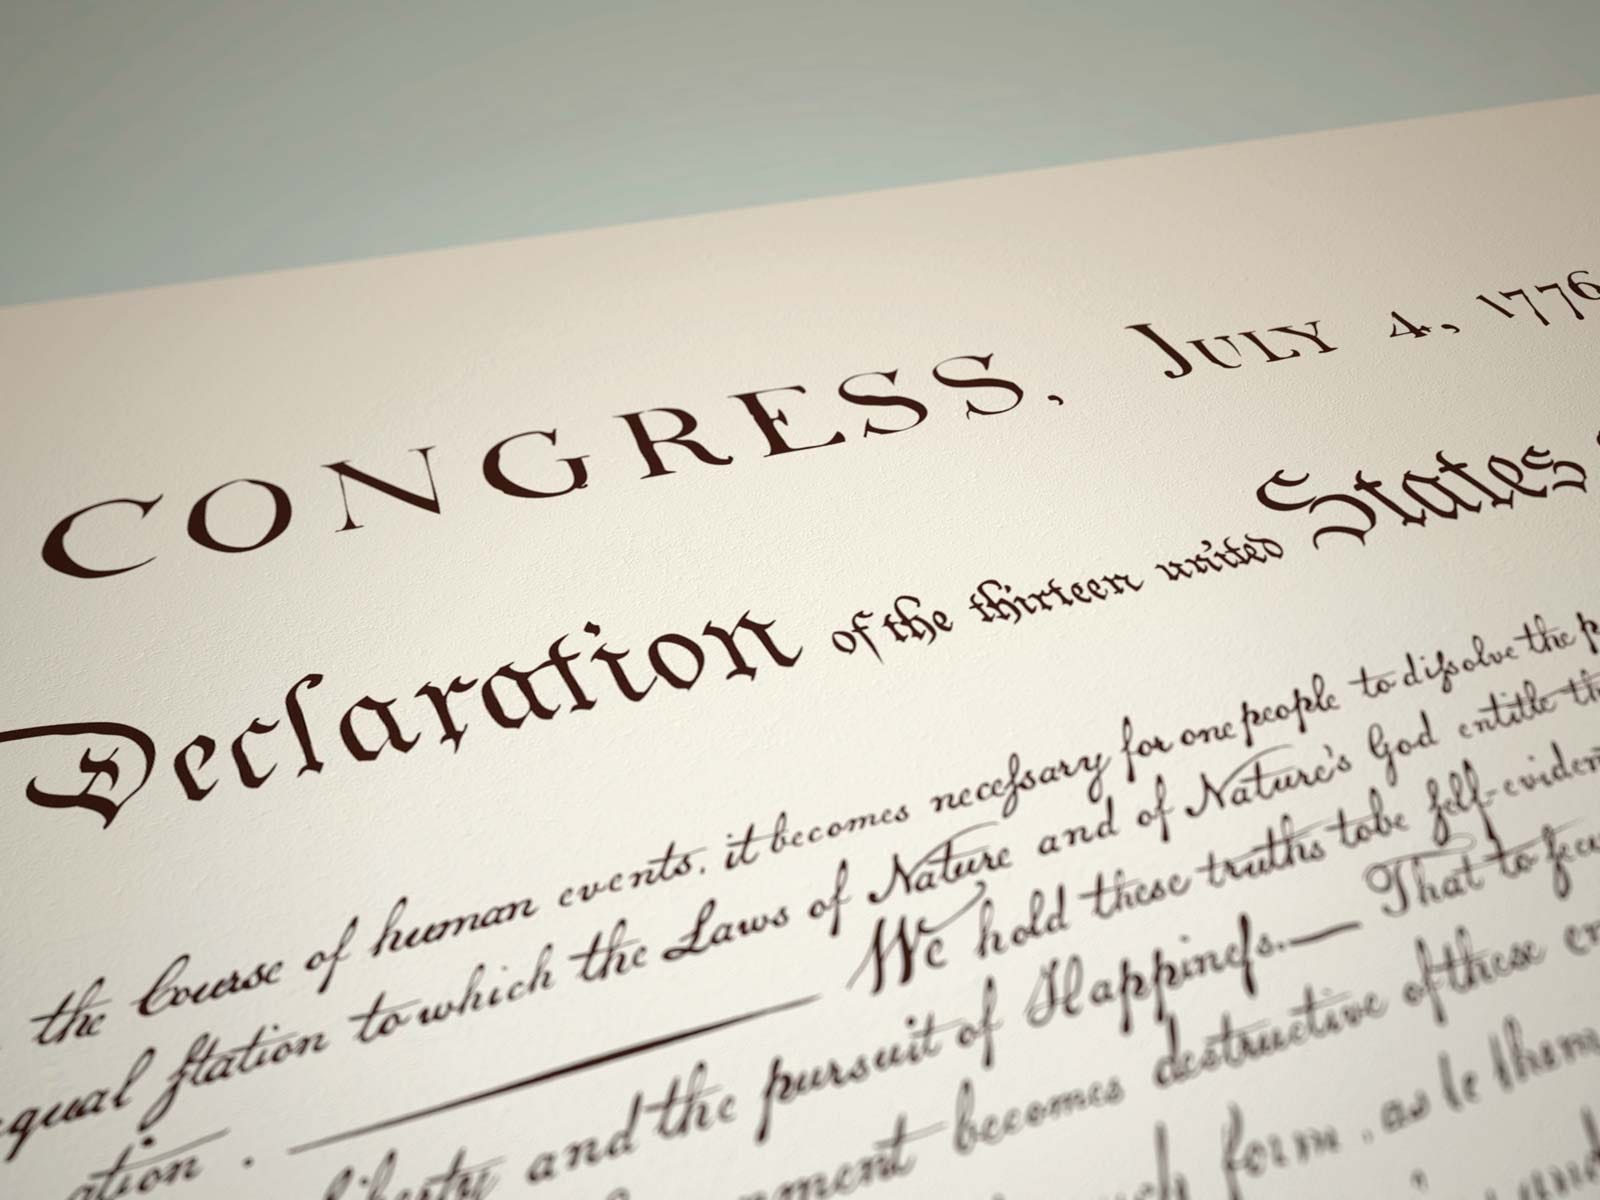 CONGRESS, JULY 4, 1776
Declaration of the thirteen united States
the Course of human events, it becomes neceſsary for one people to diſsolve the
equal ſtation to which the Laws of Nature and of Nature's God entitle
ation. — We hold these truths to be ſelf-eviden
liberty and the pursuit of Happineſs.— That to ſecu
nment becomes destructive of these en
form, as to them